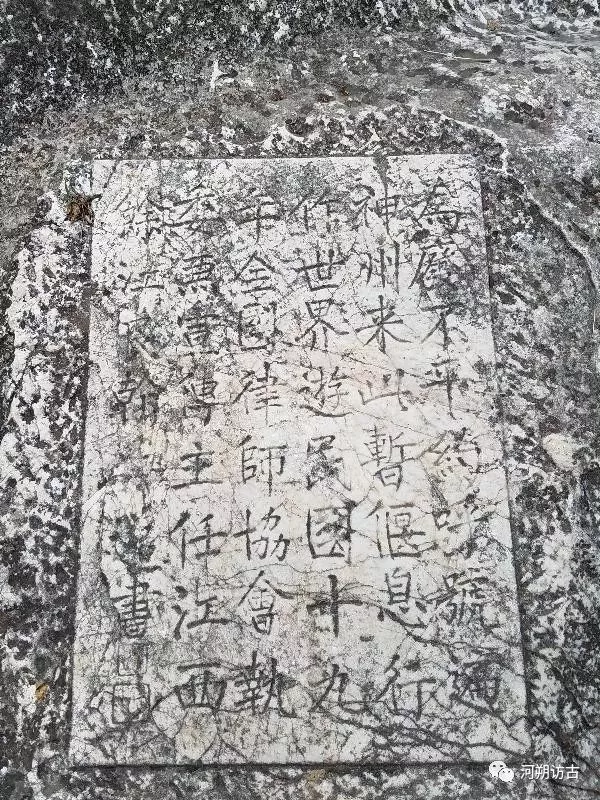 為廢不平約呼號遍
神州来此暫偃息行
作世界遊民國十九
年全國律師協會執
委兼宣傳主任江西
江翰書
河朔访古